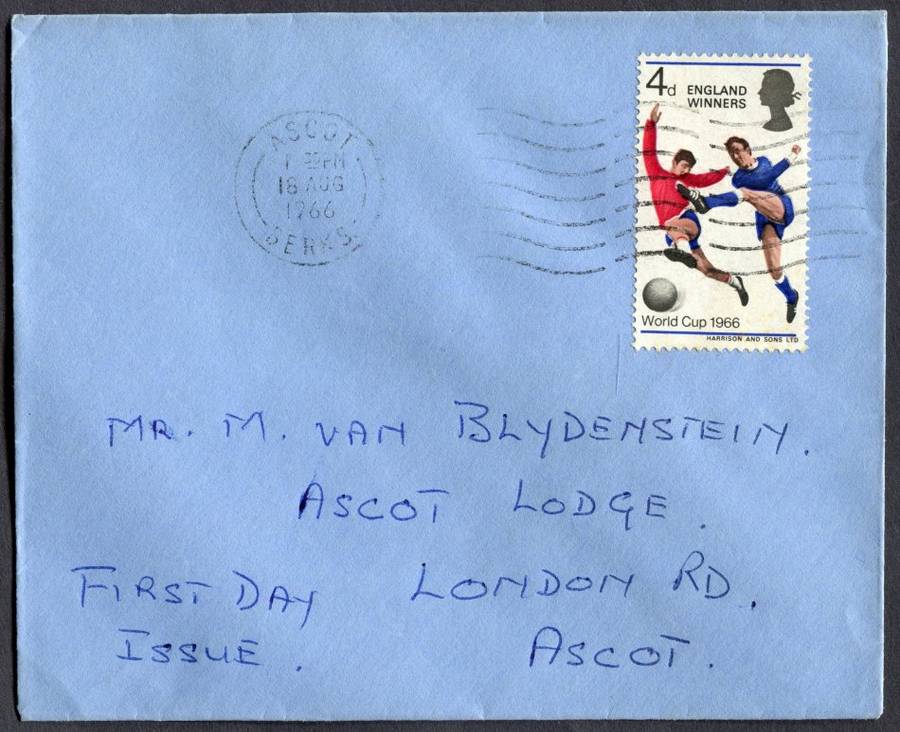 4d ENGLAND
WINNERS
World Cup 1966
HARRISON AND SONS LTD
ASCOT
PM
18 AUG
1966
BERKS.
MR. M. VAN BLYDENSTEIN.
ASCOT LODGE.
FIRST DAY LONDON RD.
ISSUE. ASCOT.